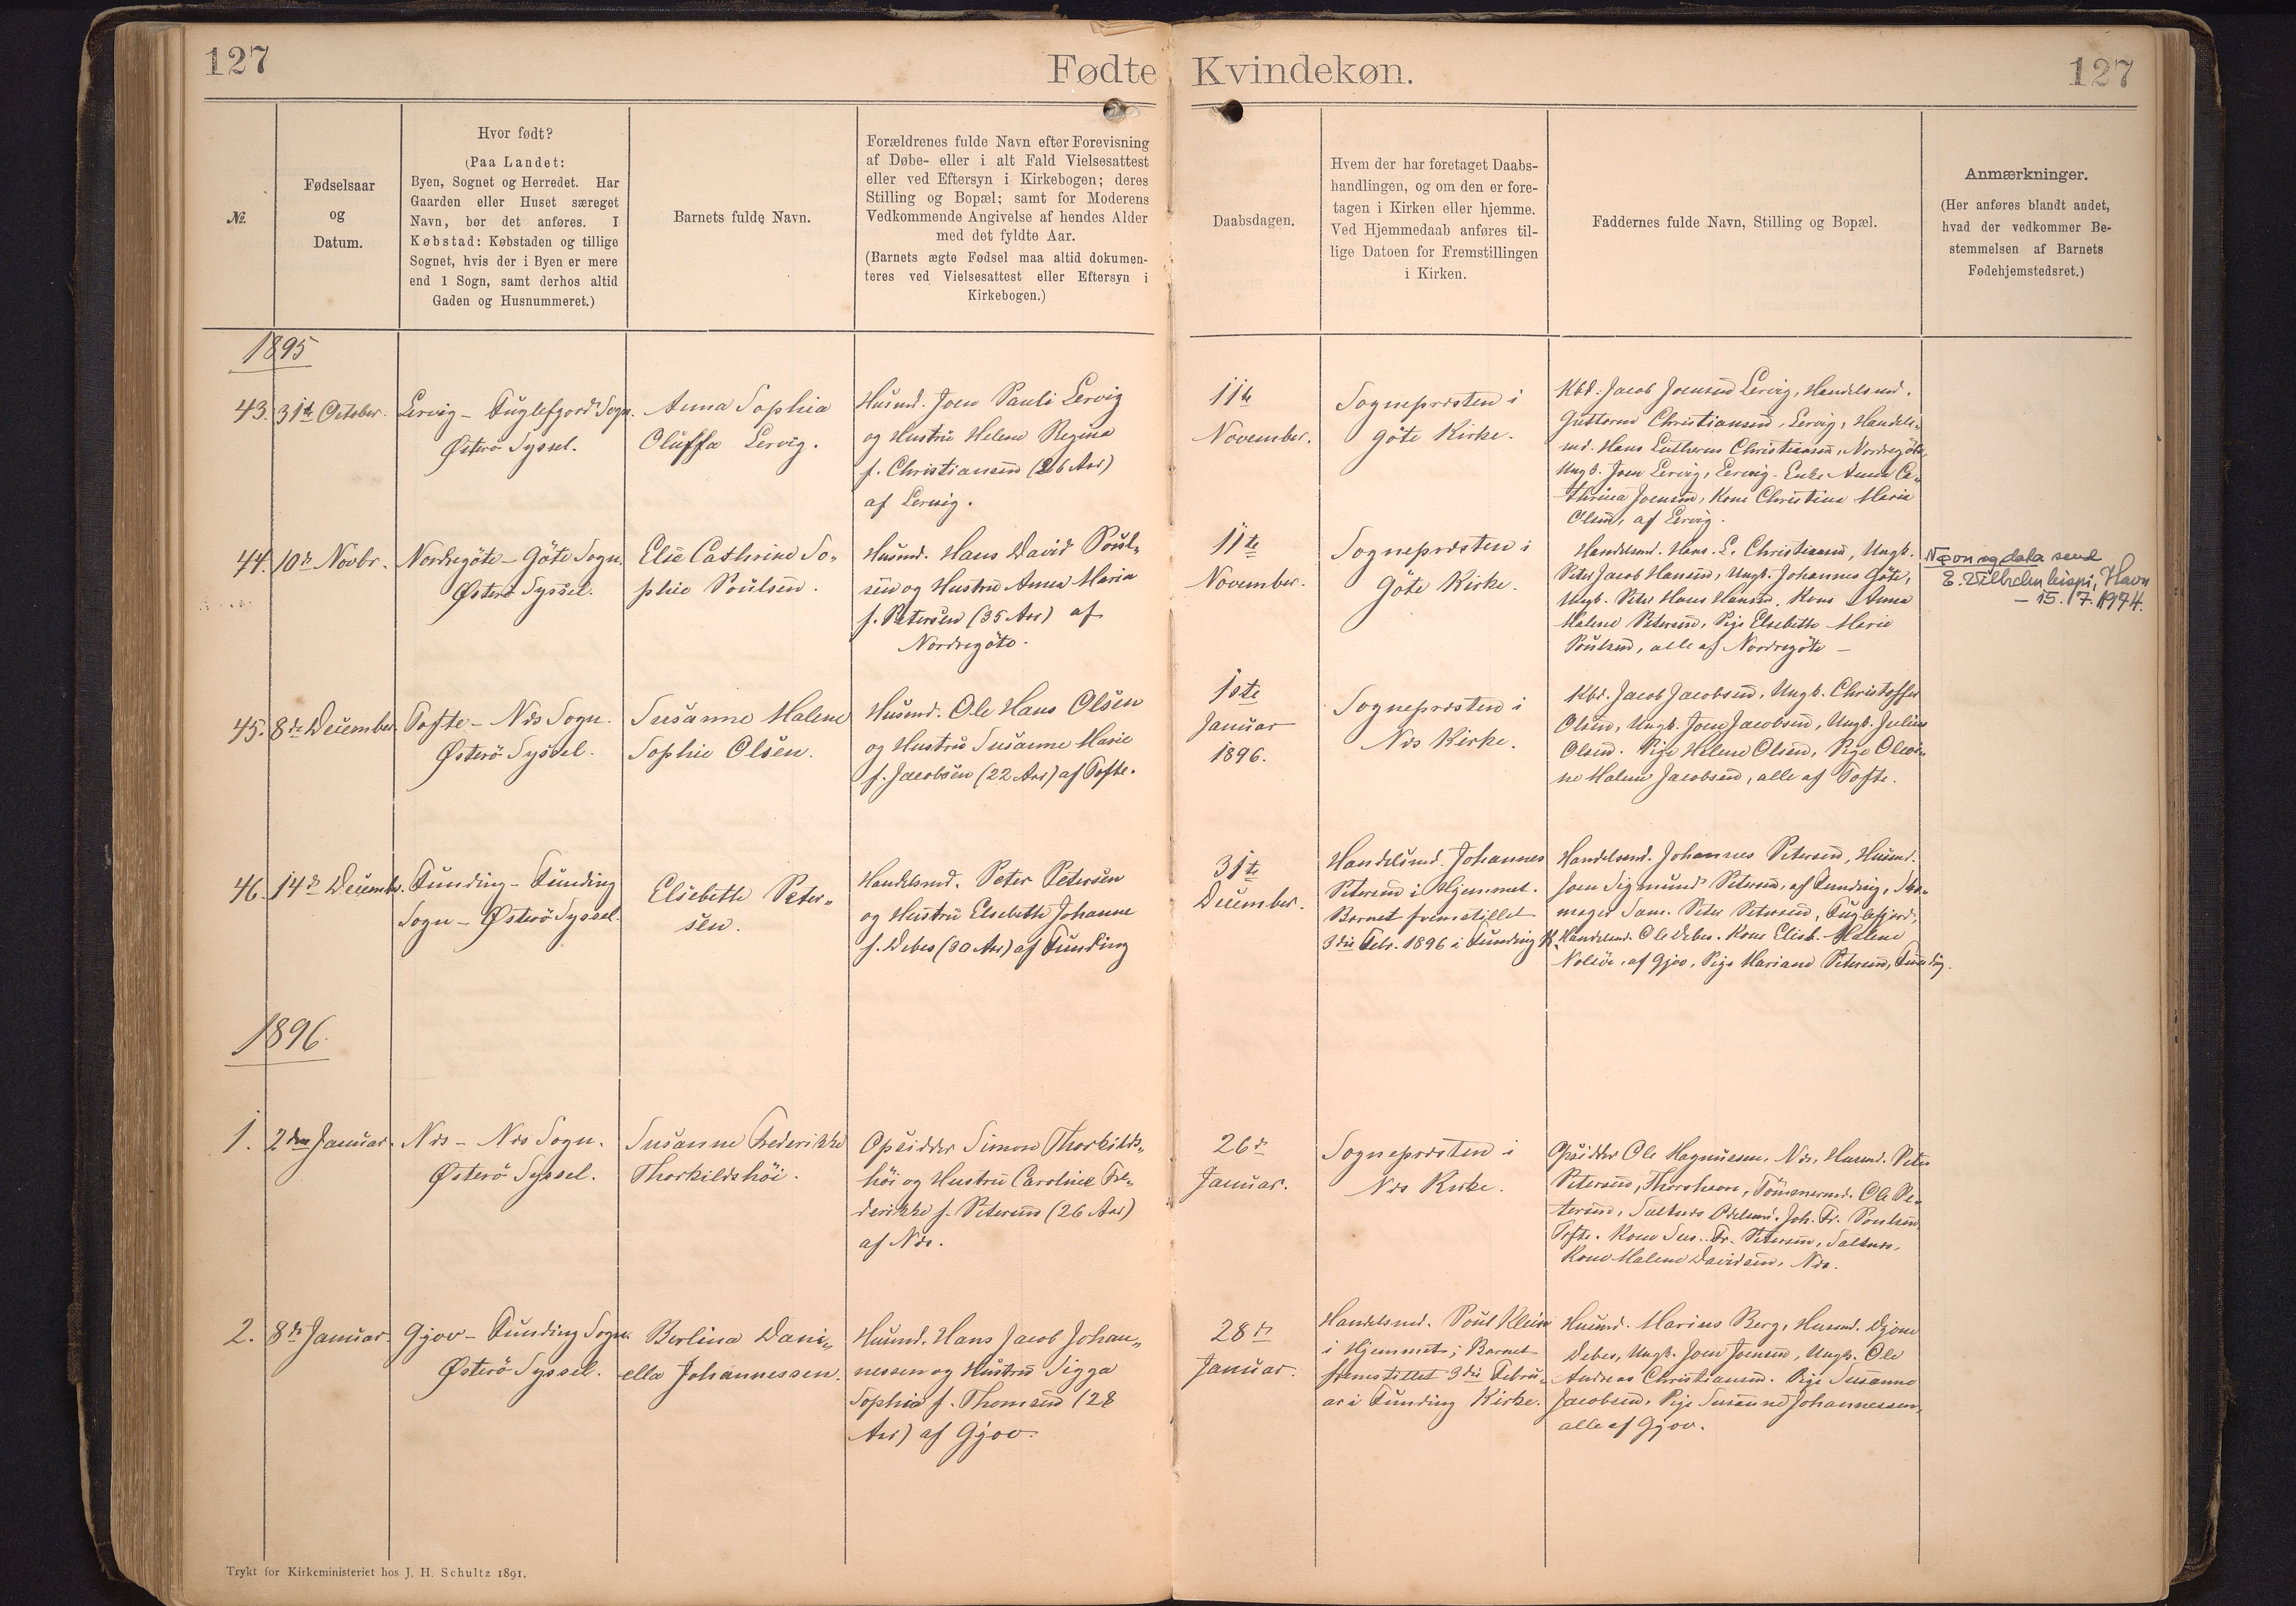 127
Fødte Kvindekøn.
127
№.
Fødselsaar
og
Datum.
Hvor født?
(Paa Landet:
Byen, Sognet og Herredet. Har
Gaarden eller Huset særeget
Navn, bør det anføres. I
Købstad: Købstaden og tillige
Sognet, hvis der i Byen er mere
end 1 Sogn, samt derhos altid
Gaden og Husnummeret.)
Barnets fulde Navn.
Forældrenes fulde Navn efter Forevisning
af Døbe- eller i alt Fald Vielsesattest
eller ved Eftersyn i Kirkebogen; deres
Stilling og Bopæl; samt for Moderens
Vedkommende Angivelse af hendes Alder
med det fyldte Aar.
(Barnets ægte Fødsel maa altid dokumen-
teres ved Vielsesattest eller Eftersyn i
Kirkebogen.)
Daabsdagen.
Hvem der har foretaget Daabs-
handlingen, og om den er fore-
tagen i Kirken eller hjemme.
Ved Hjemmedaab anføres til-
lige Datoen for Fremstillingen
i Kirken.
Faddernes fulde Navn, Stilling og Bopæl.
Anmærkninger.
(Her anføres blandt andet,
hvad der vedkommer Be-
stemmelsen af Barnets
Fødehjemstedsret.)
1895
43.
31te October.
Lervig – Fuglefjord Sogn.
Østerö Syssel.
Anna Sophia
Oluffa Lervig.
Husmd. Joen Pauli Lervig
og Hustru Helene Regina
f. Christiansen (26 Aar)
af Lervig.
11te
November.
Sognepræsten i
Göte Kirke.
Kbd. Jacob Joensen Lervig, Handelsmd.
Guttorm Christiansen, Lervig, Handels-
md. Hans Lutherus Christiansen, Nordregöte,
Ungk. Joen Lervig, Lervig. Enke Anna Ca-
thrina Joensen, Kone Christine Marie
Olsen, af Lervig.
44.
10de Novbr.
Nordregöte – Göte Sogn.
Østerö Syssel.
Else Cathrine So-
phie Poulsen.
Husmd. Hans David Poul-
sen og Hustru Anna Maria
f. Petersen (35 Aar) af
Nordregöte.
11te
November.
Sognepræsten i
Göte Kirke.
Handelsmd. Hans L. Christiansen, Ungk.
Peter Jacob Hansen, Ungk. Johannes Göte,
Ungk. Peter Hans Hansen. Kone Anna
Malene Petersen, Pige Elsebeth Marie
Poulsen, alle af Nordregöte –
Navn og data send
E. Vilhelm Havn
– 15.17.1974.
45.
8de December.
Tofte – Næs Sogn.
Østerö Syssel.
Susanne Malene
Sophie Olsen.
Husmd. Ole Hans Olsen
og Hustru Susanne Marie
f. Jacobsen (22 Aar) af Tofte.
1ste
Januar
1896.
Sognepræsten i
Næs Kirke.
Kbd. Jacob Jacobsen, Ungk. Christoffer
Olsen, Ungk. Joen Jacobsen, Ungk. Julius
Olsen. Pige Helene Olsen, Pige Olevi-
ne Malene Jacobsen, alle af Tofte.
46.
14de Decembr.
Funding – Funding
Sogn – Østerö Syssel.
Elsebeth Peter-
sen.
Handelsmd. Peter Petersen
og Hustru Elsebeth Johanne
f. Debes (30 Aar) af Funding
31te
December.
Handelsmd. Johannes
Petersen i Hjemmet.
Barnet fremstillet
3die Febr. 1896 i Funding K.
Handelsmd. Johannes Petersen, Husmd.
Joen Sigmund Petersen, af Funding, Sko-
mager Sam. Peter Petersen, Fuglefjord,
Handelsmd. Ole Debes. Kone Elisb. Malene
Nolsöe, af Gjov, Pige Mariane Petersen, Funding.
1896.
1.
2den Januar.
Næs – Næs Sogn.
Østerö Syssel.
Susanne Frederikke
Thorkildshöi.
Opsidder Simon Thorkilds-
höi og Hustru Caroline Fre-
derikke f. Petersen (26 Aar)
af Næs.
26de
Januar.
Sognepræsten i
Næs Kirke.
Opsidder Ole Magnussen, Næs, Husmd. Peter
Petersen, Thorshavn, Tömmermd. Ole Pe-
tersen, Saltnæs Joh. Fr. Poulsen
Tofte. Kone Sus. Fr. Petersen, Saltnæs,
Kone Malene Davidsen, Næs.
2.
8de Januar
Gjov – Funding Sogn.
Østerö Syssel.
Berlina Dani-
ella Johannessen.
Husmd. Hans Jacob Johan-
nessen og Hustru Sigga
Sophia f. Thomsen (28
Aar) af Gjov.
28de
Januar.
Handelsmd. Poul Klein
i Hjemmet; Barnet
fremstillet 3die Febru-
ar i Funding Kirke.
Husmd. Marius Berg, Husmd. Djone
Debes, Ungk. Joen Joensen, Ungk. Ole
Andreas Christiansen. Pige Susanne
Jacobsen, Pige Susanne Johannessen,
alle af Gjov.
Trykt for Kirkeministeriet hos J. H. Schultz 1891.